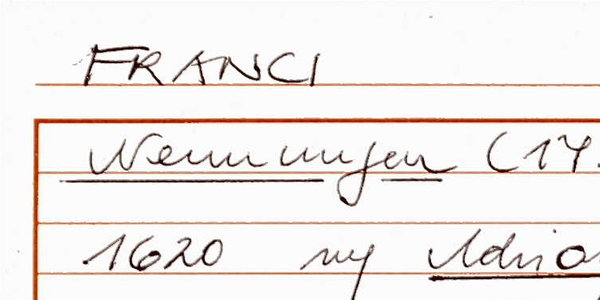 FRANCI
Nennungen (17.
1620 ny Adria